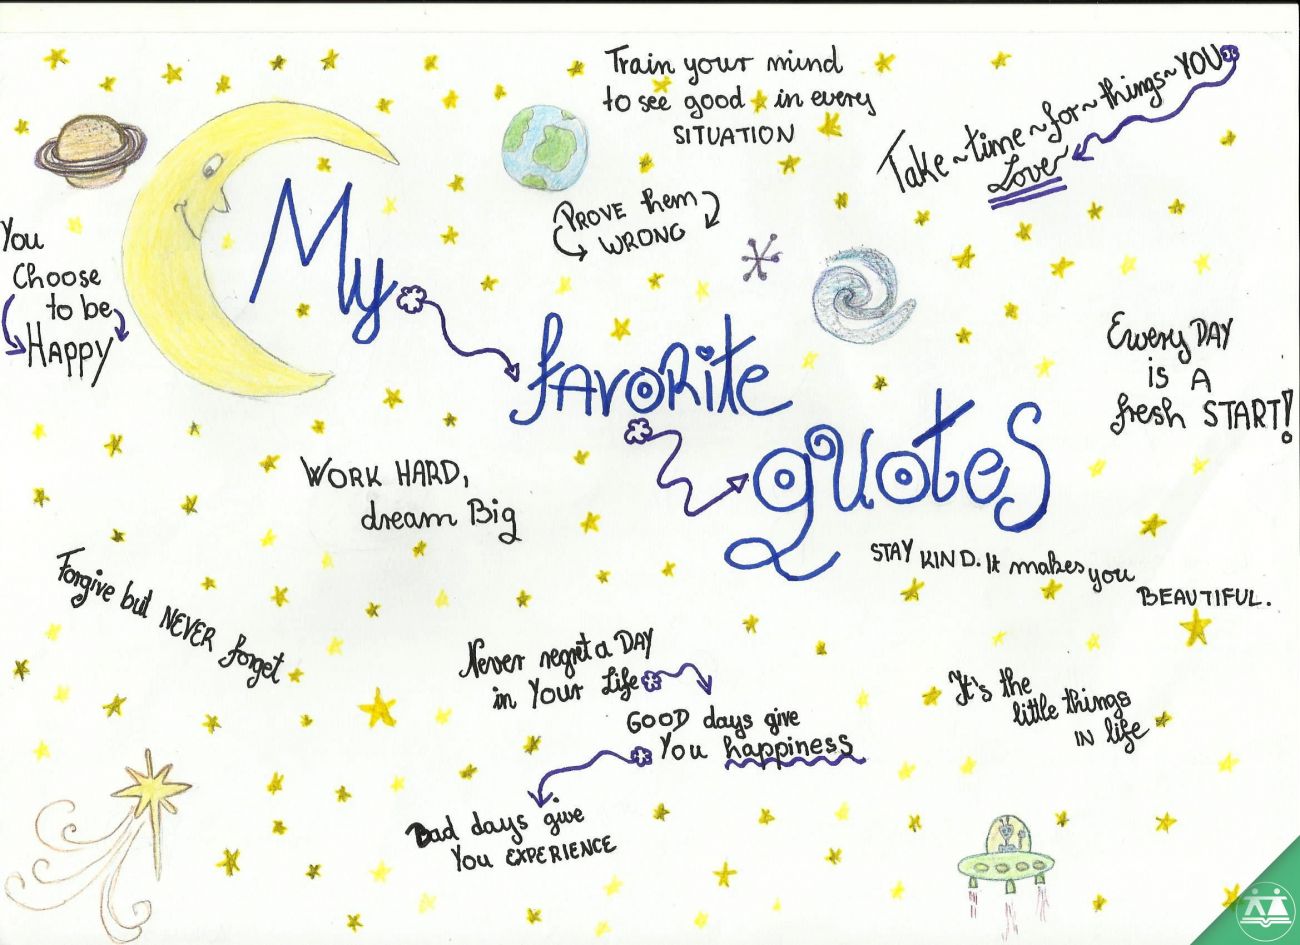 My
favorite
quotes
Train your mind
to see good in every
SITUATION
Take~time~for~things~YOU
Love
PROVE them
WRONG
You
Choose
to be
HAPPY
Every DAY
is A
fresh START!
WORK HARD,
dream Big
STAY KIND. It makes you
BEAUTIFUL.
Forgive but NEVER forget
Never regret a DAY
in Your Life
GOOD days give
You happiness
Bad days give
You EXPERIENCE
It's the
little things
IN life